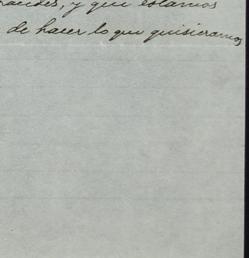 randes, y que estamos
de hacer lo que quisieramos